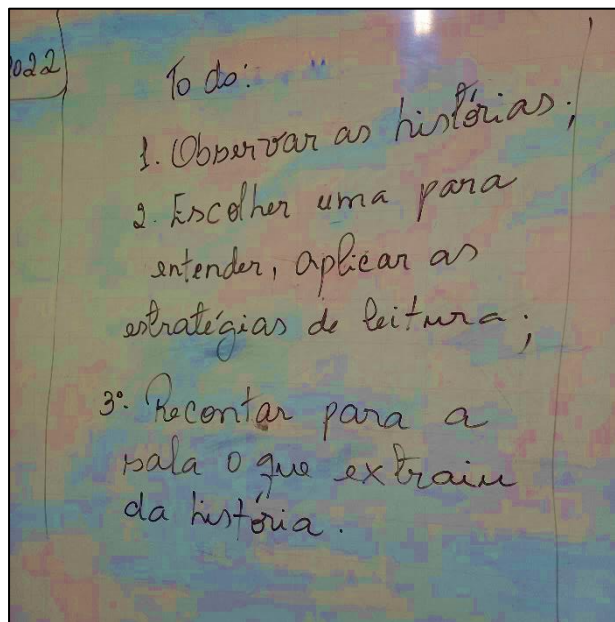 2022
To do:
1. Observar as histórias;
2. Escolher uma para
entender, aplicar as
estratégias de leitura;
3º. Recontar para a
sala o que extraiu
da história.